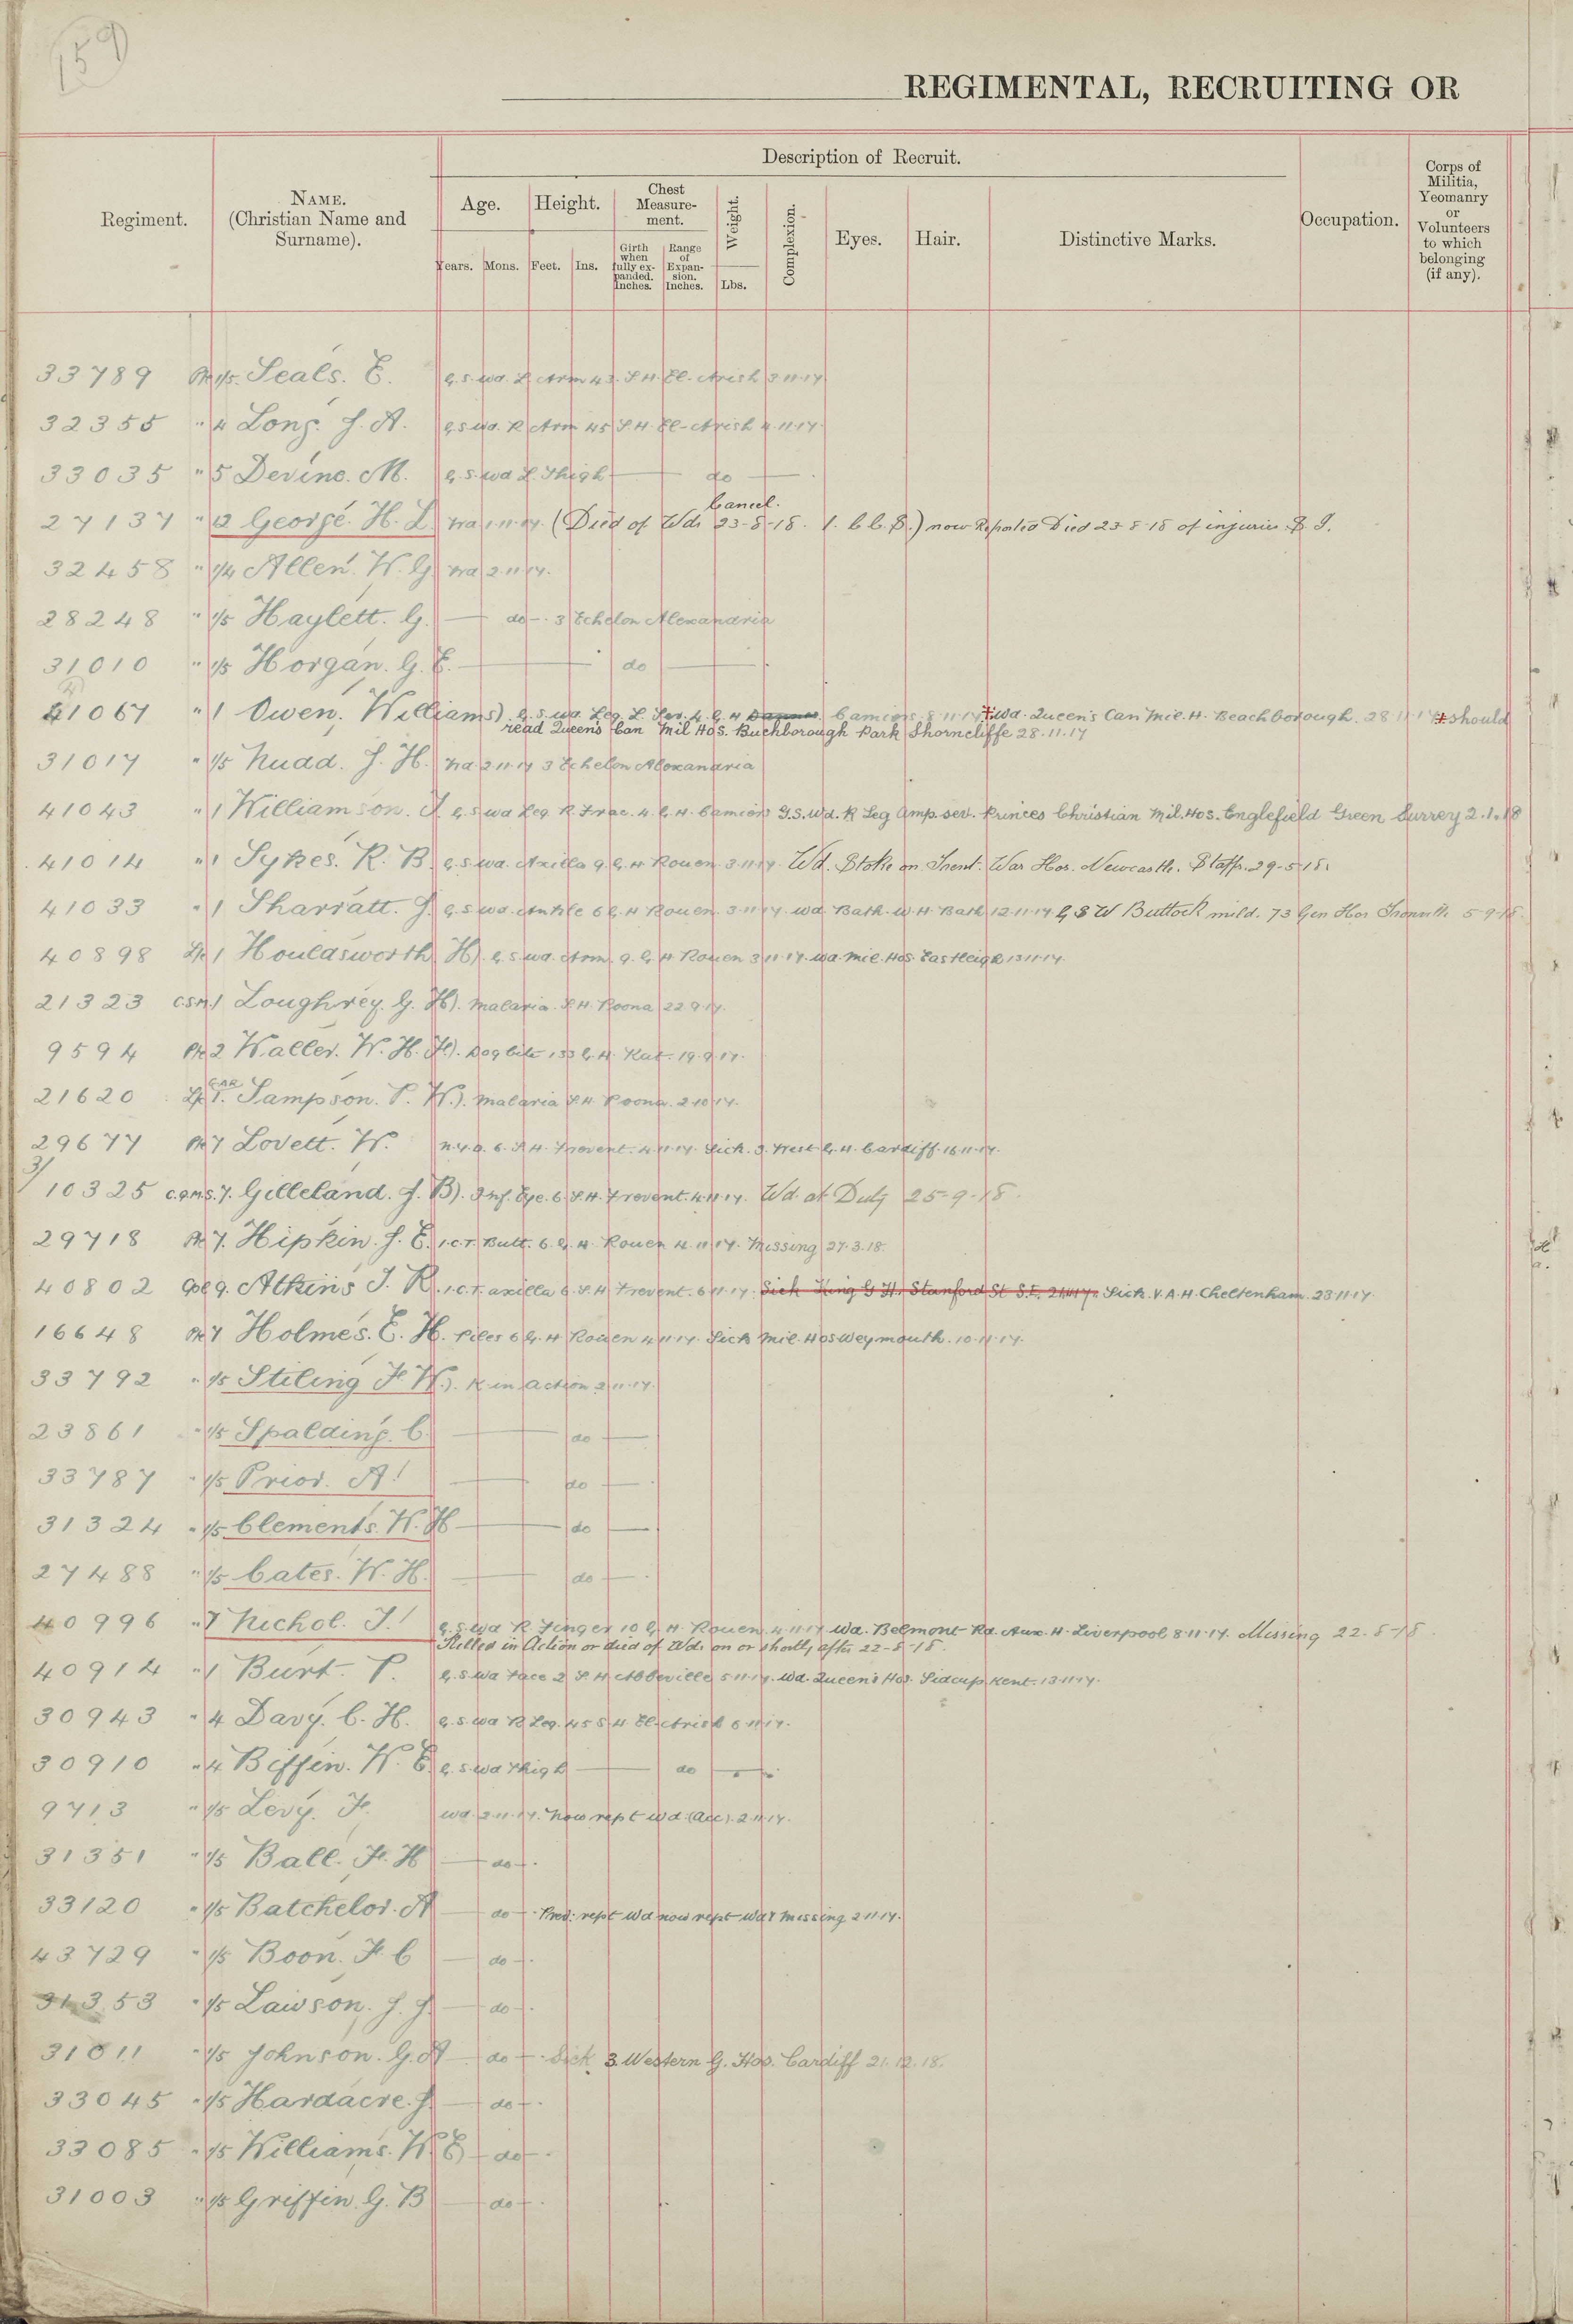 159
REGIMENTAL, RECRUITING OR
Regiment.
NAME.
(Christian Name and
Surname).
Description of Recruit.
Age.
Height.
Chest
Measure-
ment.
Weight.
Complexion.
Eyes.
Hair.
Distinctive Marks.
Occupation.
Corps of
Militia,
Yeomanry
or
Volunteers
to which
belonging
(if any).
Years. Mons. Feet. Ins.
Girth
when
fully ex-
panded.
Inches.
Range
of
Expan-
sion.
Inches.
Lbs.
33789 Pte 1/5. Seals. E. G.S.wd. L Arm 43. S.H. El-Arish 3.11.17
32355 " 4 Long. J. A. G.S.wd. R Arm 45 S.H. El-Arish 4.11.17.
33035 " 5 Devine. M. G.S.wd L. Thigh do
Cancel.
27137 " George. H. L. wd 1.11.17. (Died of Wds 23-5-18. 1. C.C.S.) now Reported Died 23.5.18 of injuries
32458 " 1/4 Allen. W. G. wd 2.11.17.
28248 " 1/5 Haylett. G. do. 3 Echelon Alexandria
31010 " 1/5 Horgan. G. E. do
41067 " 1 Owen. Williams) G.S.wd. Leg. L. Sev. 4. G.H. Camiers. 8.11.17 ‡ wd. Queen's Can Mil. H. Beachborough. 28.11.17 ‡ should
read Queens Can Mil Hos. Buchborough Park Shorncliffe 28.11.17
31017 " 1/5 Nudd. J. H. wd 2.11.17 3 Echelon Alexandria
41043 " 1 Williamson. J. G.S.wd Leg. R. Frac. 4. G.H. Camiers G.S.Wd. R Leg Amp. sev. Princes Christian Mil. Hos. Englefield Green Surrey 2.1.18
41014 " 1 Sykes. R. B. G.S.wd. Axilla 9. G.H. Rouen. 3.11.17. Wd. Stoke on Trent: War Hos. Newcastle. Staffs. 29-5-18.
41033 " 1 Sharratt. J. G.S.wd. Ankle 6 G.H Rouen. 3.11.17. wd. Bath. W.H. Bath 12.11.17 G S W Buttock mild. 73 Gen Hos Trouville 5-9-18.
40898 L/c 1 Houldsworth H). G.S.wd. Arm. 9. G.H Rouen 3.11.17. wd. Mil. Hos. Eastleigh 13.11.17.
21323 CSM. 1 Loughrey. G. H). Malaria. S.H. Poona 22.9.17.
9594 Pte 2 Waller. W. H. H). Dog bite 133 G.H. Kut. 19.9.17.
21620 L/c GAR T. Sampson. P. W.). Malaria S.H. Poona. 2.10.17.
29677 Pte 7 Lovett. W. N.Y.D. 6. S.H. Frevent. 4.11.17. Sick. 3. West G.H. Cardiff. 16.11.17.
3/10325 C.Q.M.S. 7. Gilleland. J. B). Inf. Eye. 6. S.H. Frevent. 4.11.17. Wd. at Duty 25-9-18.
29718 Pte 7. Hipkin. J. E. I.C.T. Butt. 6. G.H. Rouen 4.11.17. Missing 27.3.18.
40802 Cpl 9. Atkins J. R. I.C.T. axilla 6. S.H Frevent. 6.11.17. Sick King G H. Stamford St S.E. Sick. V.A.H. Cheltenham. 23.11.17.
16648 Pte 7 Holmes. E. H. Piles 6 G.H Rouen 4.11.17. Sick Mil. Hos Weymouth. 10.11.17.
33792 " 1/5 Stiling F. W.). K in action 2.11.17.
23861 " 1/5 Spalding. C. do
33787 " 1/5 Prior. A. do
31324 " 1/5 Clements. W. H do
27488 " 1/5 Cates. W. H. do
40996 " 1 Nichol. J. G.S.wd R Finger 10 G.H. Rouen 4.11.17 Wd. Belmont Rd. Aux. H. Liverpool 8.11.17. Missing 22.5-18.
Killed in Action or died of Wds on or shortly after 22-5-18.
40914 " 1 Burt. P. G.S.wd Face 2 S.H Abbeville 5.11.17. wd. Queen's Hos. Sidcup Kent. 13.11.17.
30943 " 4 Davy. C. H. G.S.wd R Leg. 45 S H El-Arish 6.11.17.
30910 " 4 Biffin. W. E. G.S.wd Thigh do
9713 " 1/5 Levy. F. wd. 2.11.17. Now rept wd. (Acc). 2.11.17.
31351 " 1/5 Ball. F. H do.
33120 " 1/5 Batchelor. A do. Prev: rept wd now rept wd & Missing 2.11.17.
43729 " 1/5 Boon. F. C do.
31353 " 1/5 Lawson. J. J. do.
31011 " 1/5 Johnson. G. A do. Sick 3. Western G. Hos. Cardiff 21.12.18.
33045 " 1/5 Hardacre. J. do.
33085 " 1/5 Williams. W. E do.
31003 " 1/5 Griffin. G. B do.